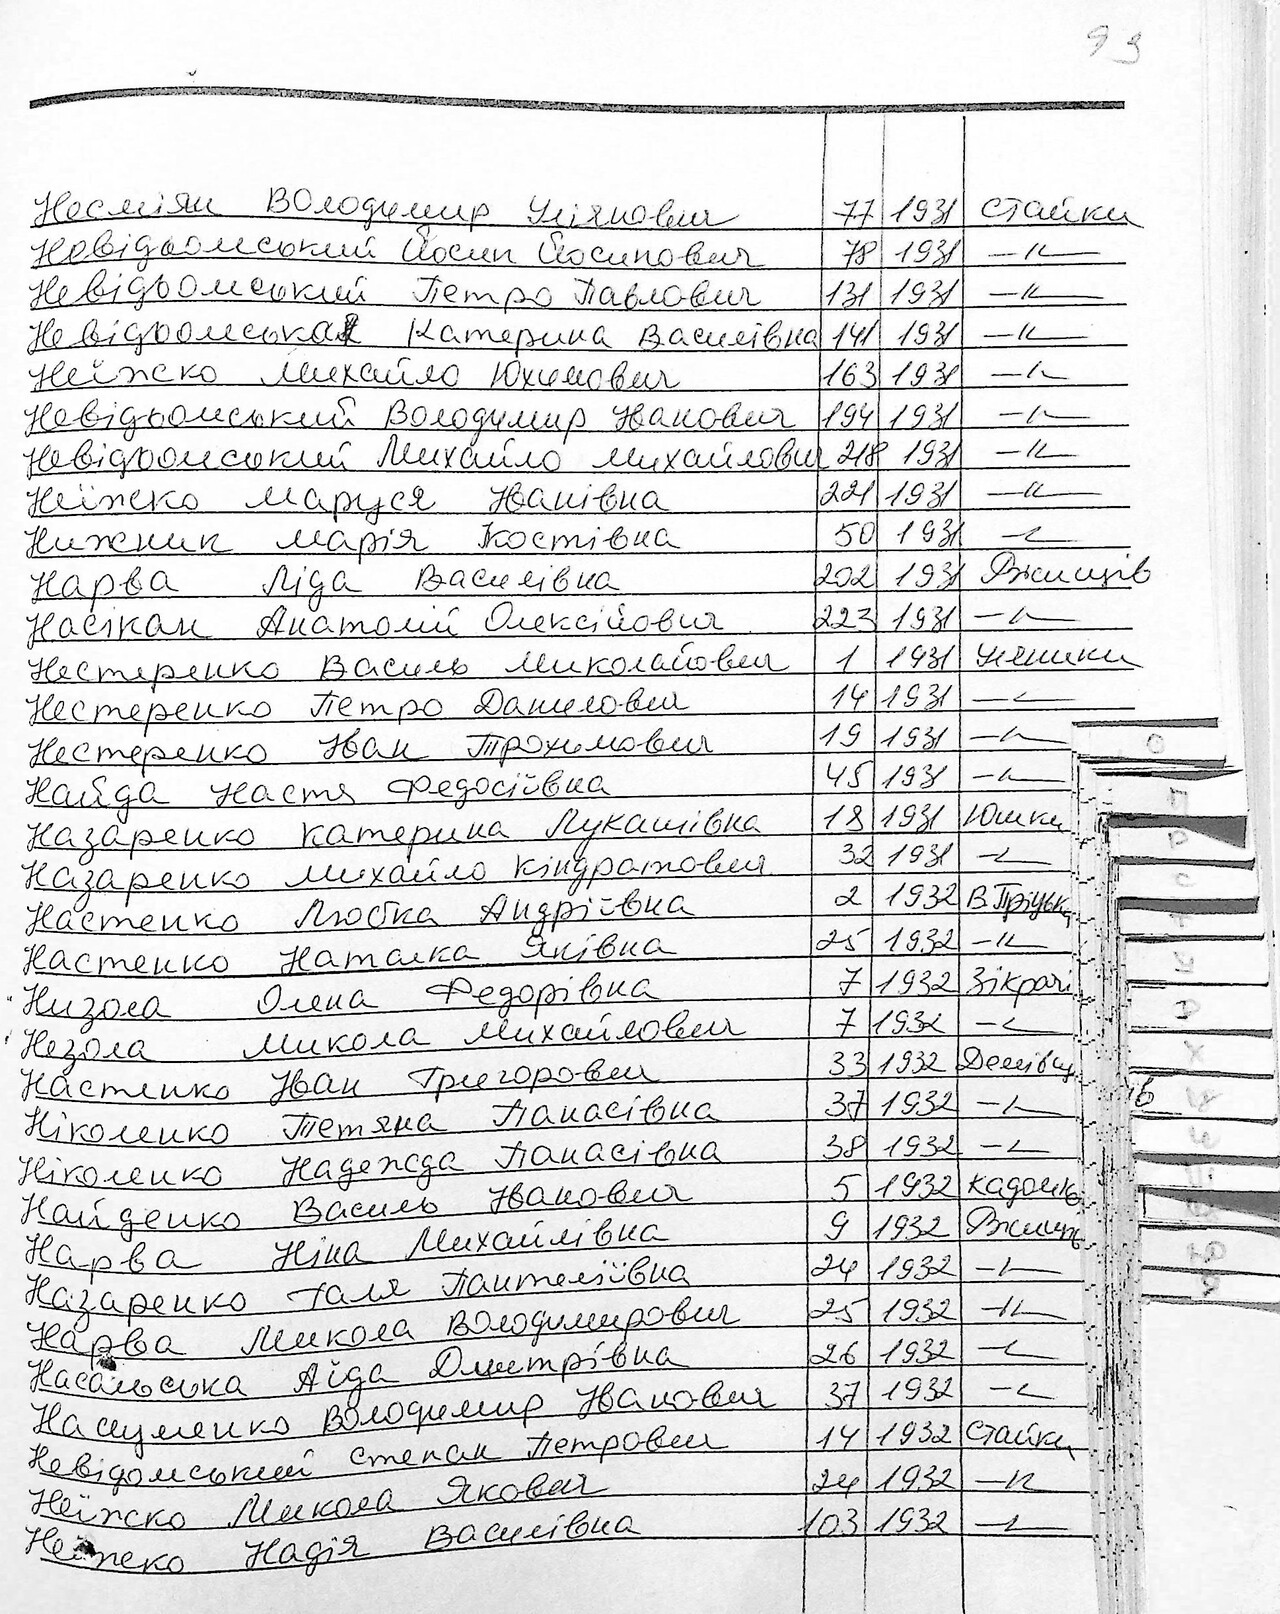 93
Несміян Володимир Уліянович 77 1931 Стайки
Невідьомський Йосип Йосипович 78 1931 —"—
Невідьомський Петро Павлович 131 1931 —"—
Невідьомська Катерина Василівна 141 1931 —"—
Неїжско Михайло Юхимович 163 1931 —"—
Невідьомський Володимир Іванович 194 1931 —"—
Невідьомський Михайло Михайлович 218 1931 —"—
Неїжско Маруся Іванівна 221 1931 —"—
Нижник Марія Костівна 50 1931 —"—
Нарва Ліда Василівна 202 1931 Ржищів
Насікан Анатолій Олексійович 223 1931 —"—
Нестеренко Василь Миколайович 1 1931 Уляники
Нестеренко Петро Данилович 14 1931 —"—
Нестеренко Іван Трохимович 19 1931 —"—
Найда Настя Федосіївна 45 1931 —"—
Назаренко Катерина Лукашівна 18 1931 Юшки
Назаренко Михайло Кіндратович 32 1931 —"—
Настенко Любка Андріївна 2 1932 В.Пріцьк
Настенко Наталка Яківна 25 1932 —"—
Низола Олена Федорівна 7 1932 Зікрачі
Незола Микола Михайлович 7 1932 —"—
Настенко Іван Григорович 33 1932 Демівщ
Ніколенко Тетяна Панасівна 37 1932 —"—
Ніколенко Надежда Панасівна 38 1932 —"—
Найденко Василь Іванович 5 1932 Кадомк
Нарва Ніна Михайлівна 9 1932 Ржищ
Назаренко Галя Пантеліївна 24 1932 —"—
Нарва Микола Володимирович 25 1932 —"—
Насальська Аїда Дмитрівна 26 1932 —"—
Науменко Володимир Іванович 37 1932 —"—
Невідомський Степан Петрович 14 1932 Стайки
Неїжско Микола Якович 24 1932 —"—
Неїжско Надія Василівна 103 1932 —"—